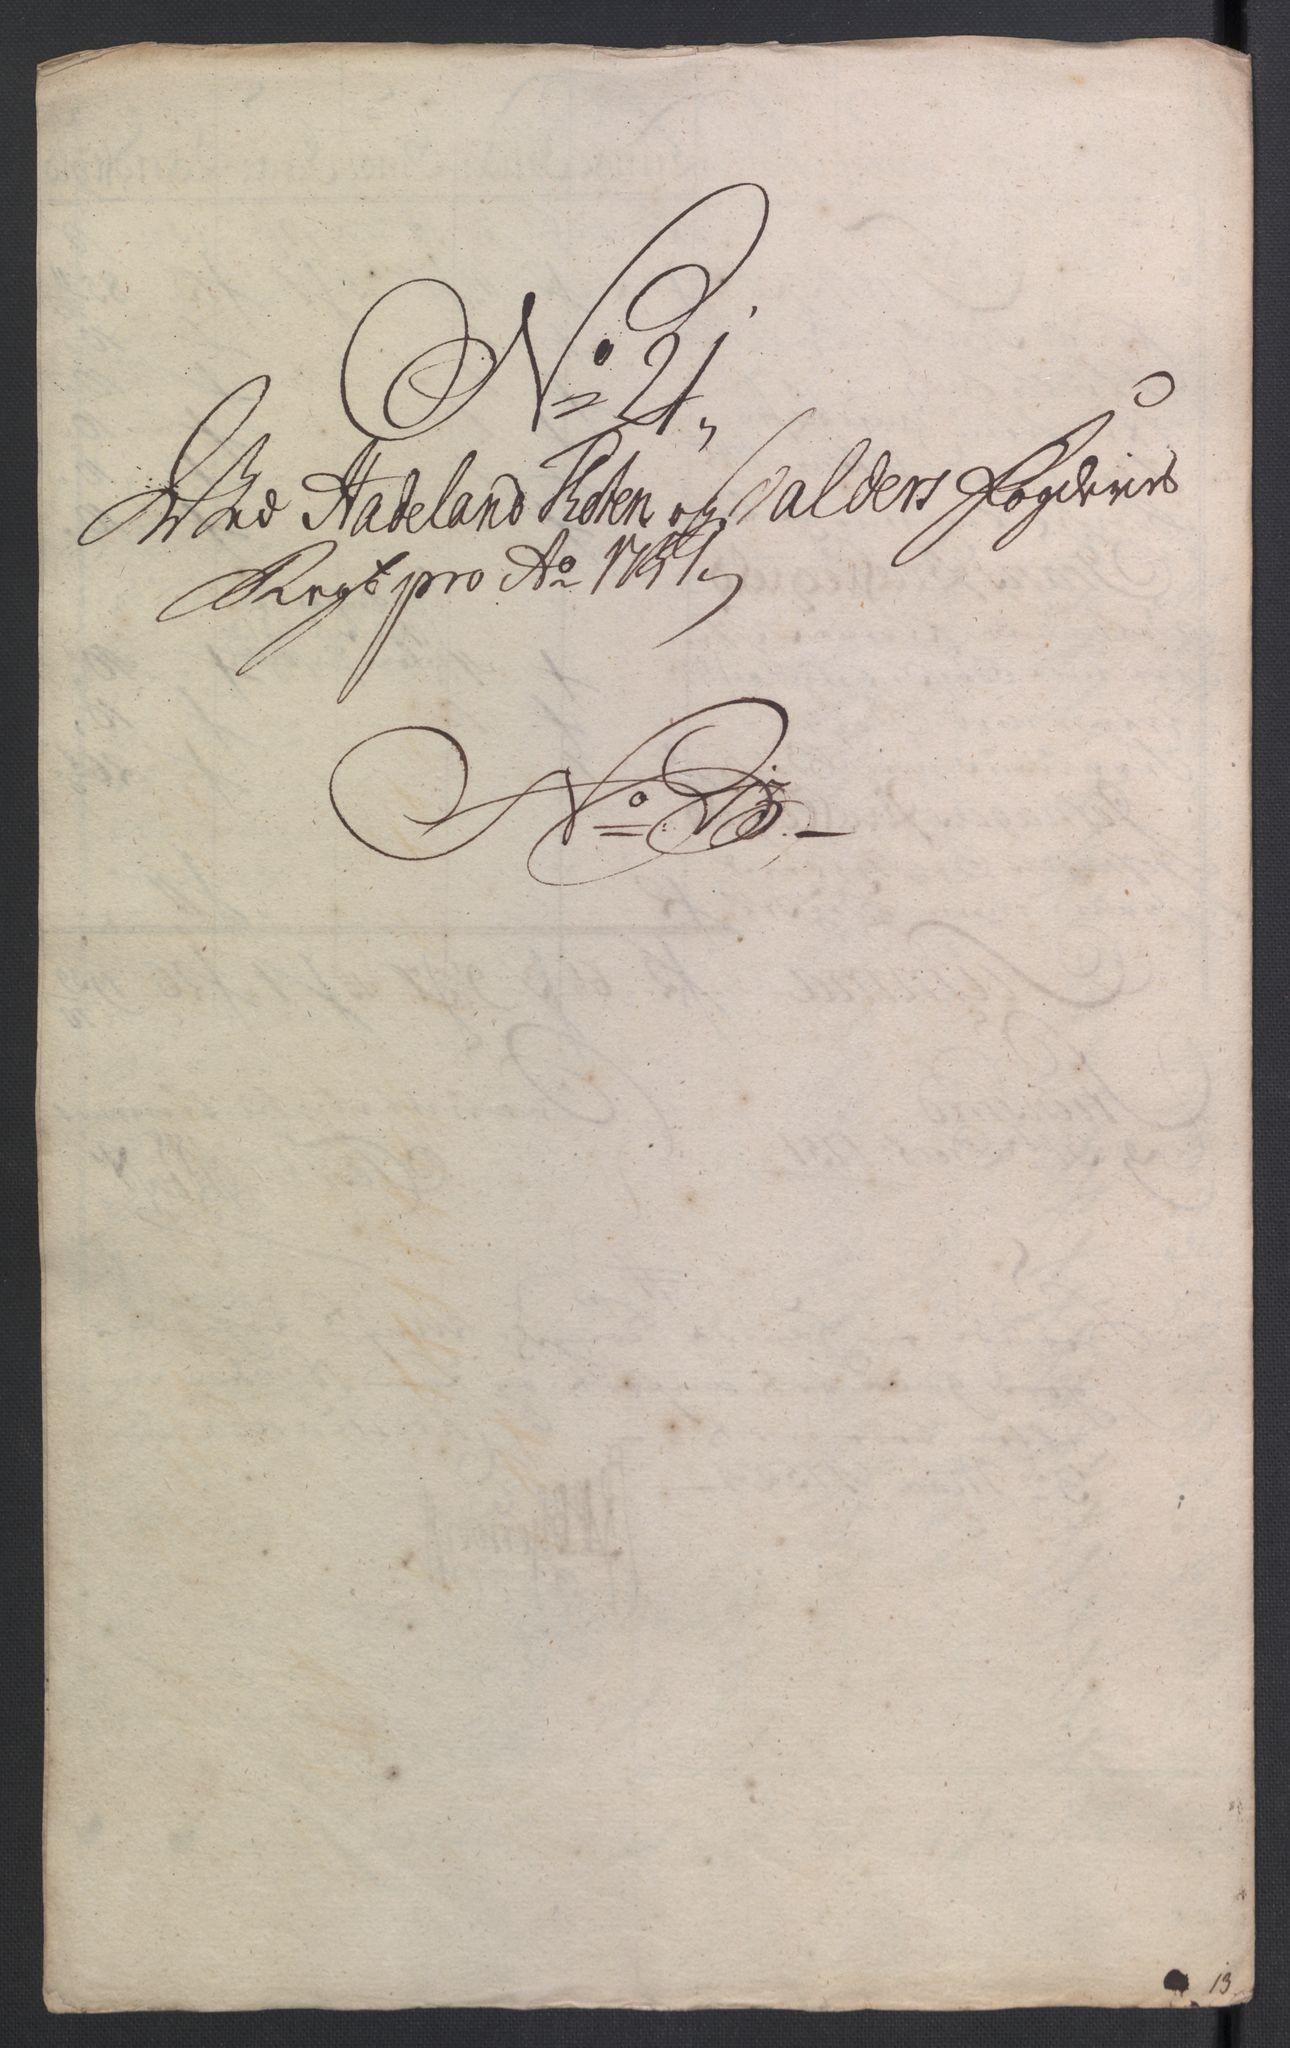 No 21,
Ved Hadeland Toten og Valders Fogderies
Regb pro Ao 1751,
No
13